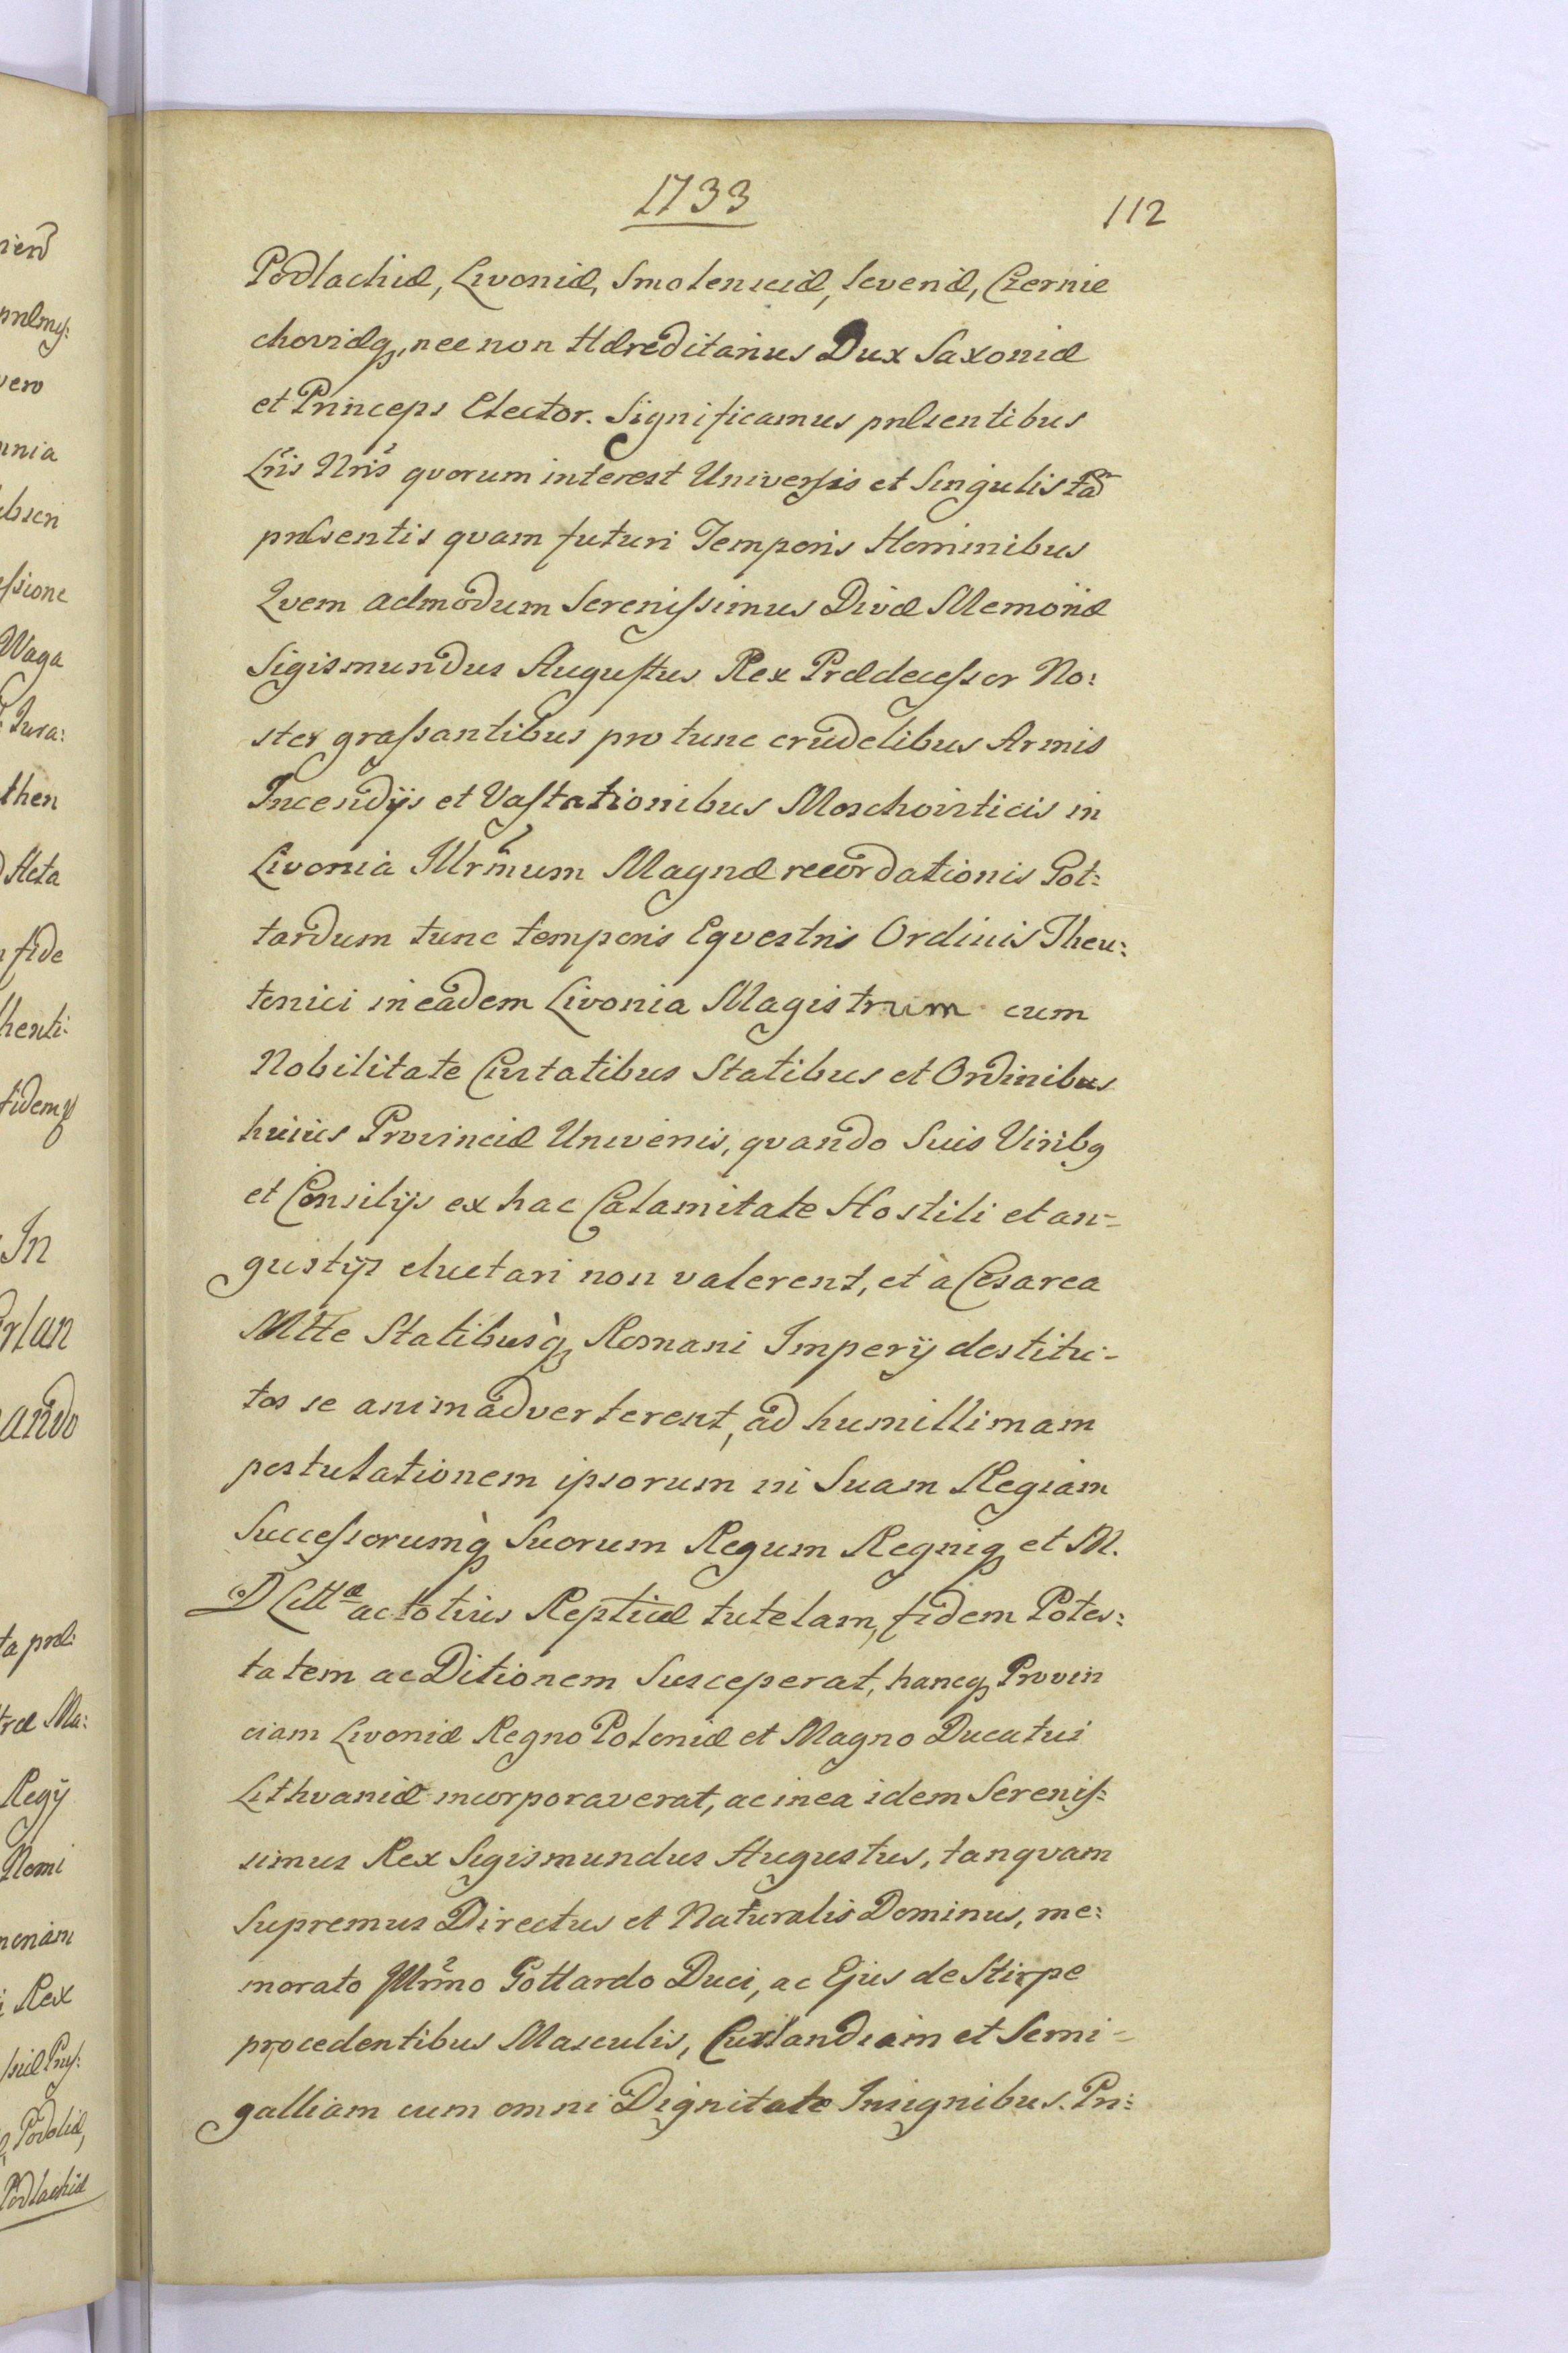 1733
112
Podlachiæ, Livoniæ, Smolensciæ, Severiæ, Czernie
choviæq, nec non Hæreditarius Dux Saxoniæ
et Princeps Elector. Significamus pnlsentibus
Lris Nris quorum interest Universis et Singulis ta
pnlsentis quam futuri Temporis Hominibus
Quem admodum Serenissimus Divæ Memoriæ
Sigismundus Augustus Rex Prædecessor No:
ster grassantibus pro tunc crudelibus Armis
Incendijs et Vastationibus Moschoviticis in
Livonia Illrmum Magnæ recordationis Got:
tardum tunc temporis Eqvestris Ordinis Theu:
tonici in eadem Livonia Magistrum cum
Nobilitate Civitatibus Statibus et Ordinibus
huius Provinciæ Universis, qvando Suis Viribq
et Consilijs ex hac Calamitate Hostili et an-
gustijs eluctari non valerent, et à Cesarea
Mtte Statibusq Romani Imperij destitu-
tos se animadverterent, ad humillimam
postulationem ipsorum in Suam Regiam
Successorumq Suorum Regum Regniq et M.
D Littæ ac totius Repticæ tutelam, fidem Potes:
tatem ac Ditionem Susceperat, hancq Provin
ciam Livoniæ Regno Poloniæ et Magno Ducatui
Lithvaniæ incorporaverat, ac in ea idem Serenis:
simus Rex Sigismundus Augustus, tanqvam
Supremus Directus et Naturalis Dominus, me:
morato Illrmo Gottardo Duci, ac Ejus de Stirpe
procedentibus Masculis, Curlandiam et Semi-
galliam cum omni Dignitate Insignibus. Pri:
nia
vero
Waga
then
Acta
fide
In
ando
Regij
Rex
Podoliæ,
Podlachiæ